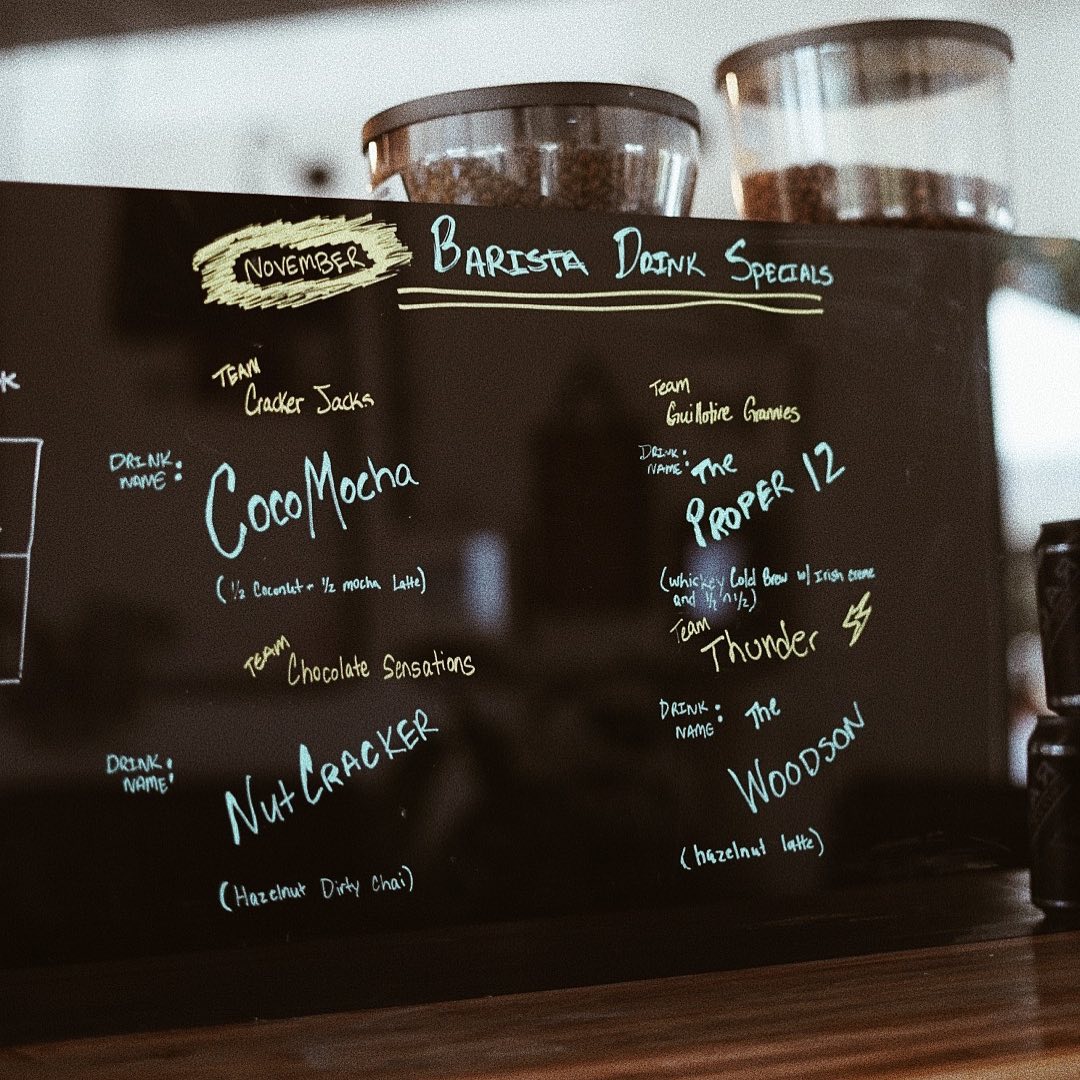 NOVEMBER
BARISTA DRINK SPECIALS
TEAM
Cracker Jacks
DRINK
NAME:
CocoMocha
(½ Coconut + ½ mocha Latte)
TEAM
Chocolate Sensations
DRINK
NAME:
NutCRACKER
(Hazelnut Dirty Chai)
Team
Guillotine Grannies
DRINK
NAME: The
PROPER 12
(Whiskey Cold Brew w/ Irish creme
and ½ n ½)
Team
Thunder
DRINK
NAME: The
WOODSON
(hazelnut latte)